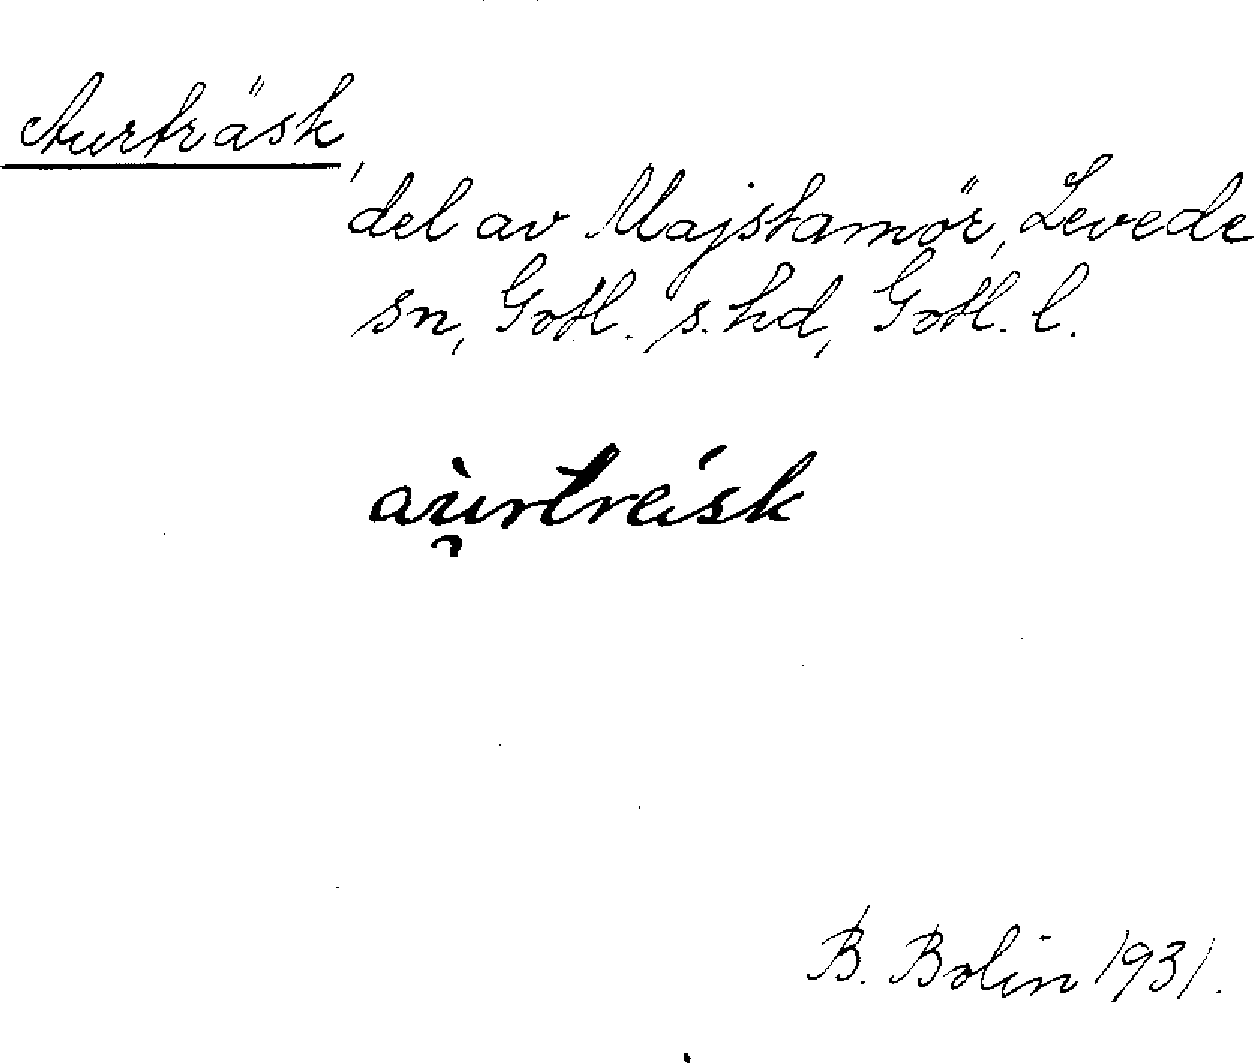 Aurträsk,
del av Majstamör, Levede
sn, Gotl. s. hd, Gotl. l.
aurtreisk
B. Bolin 1931.